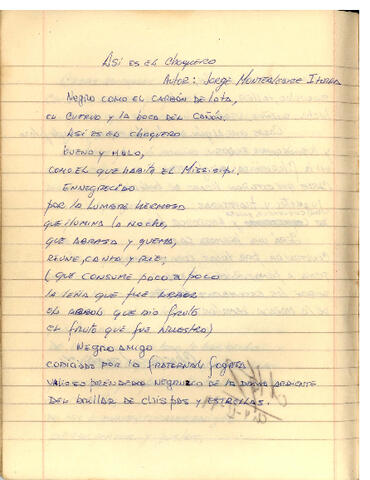 Así es el Choquero
Autor: Jorge Montealegre Iturra
Negro como el carbón de lota,
el cuervo y la boca del cañón,
Así es el choquero
bueno y malo,
como el que habita el Mississipi,
Ennegrecido
por la lumbre hermosa
que ilumina la noche,
que abrasa y quema,
reune, canta y ríe;
(que consume poco a poco
la leña que fue
el que dió fruto
el fruto que fue nuestro)
Negro amigo
cobijado por la fraternal fogata
valioso prendedor negruzco de la dama ardiente
del bailar de chispas y estrellas.